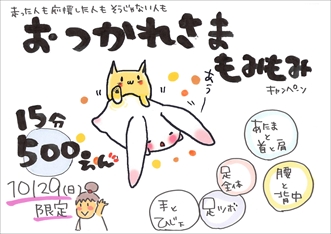 走った人も応援した人もそうじゃない人も
おつかれさま
もみもみ
キャンペーン
おう
15分
500えん
10/29(日)
限定
あたま
と
首と肩
足
全体
腰
と
背中
手
と
ひじ下
足ツボ